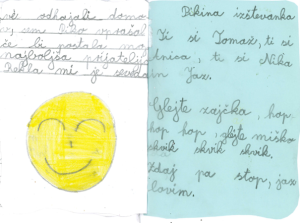 odhajali domo
sem Niko vprašal
če bi postala mo
najboljša prijatelji
Rekla mi je seveda
Pikina izštevanka
Ti si Tomaž, ti si
Anica, ti si Nika
in Jaz.
Glejte zajčka, hop
hop hop, glejte miško
skvik skvik skvik.
Zdaj pa stop, jaz
lovim.